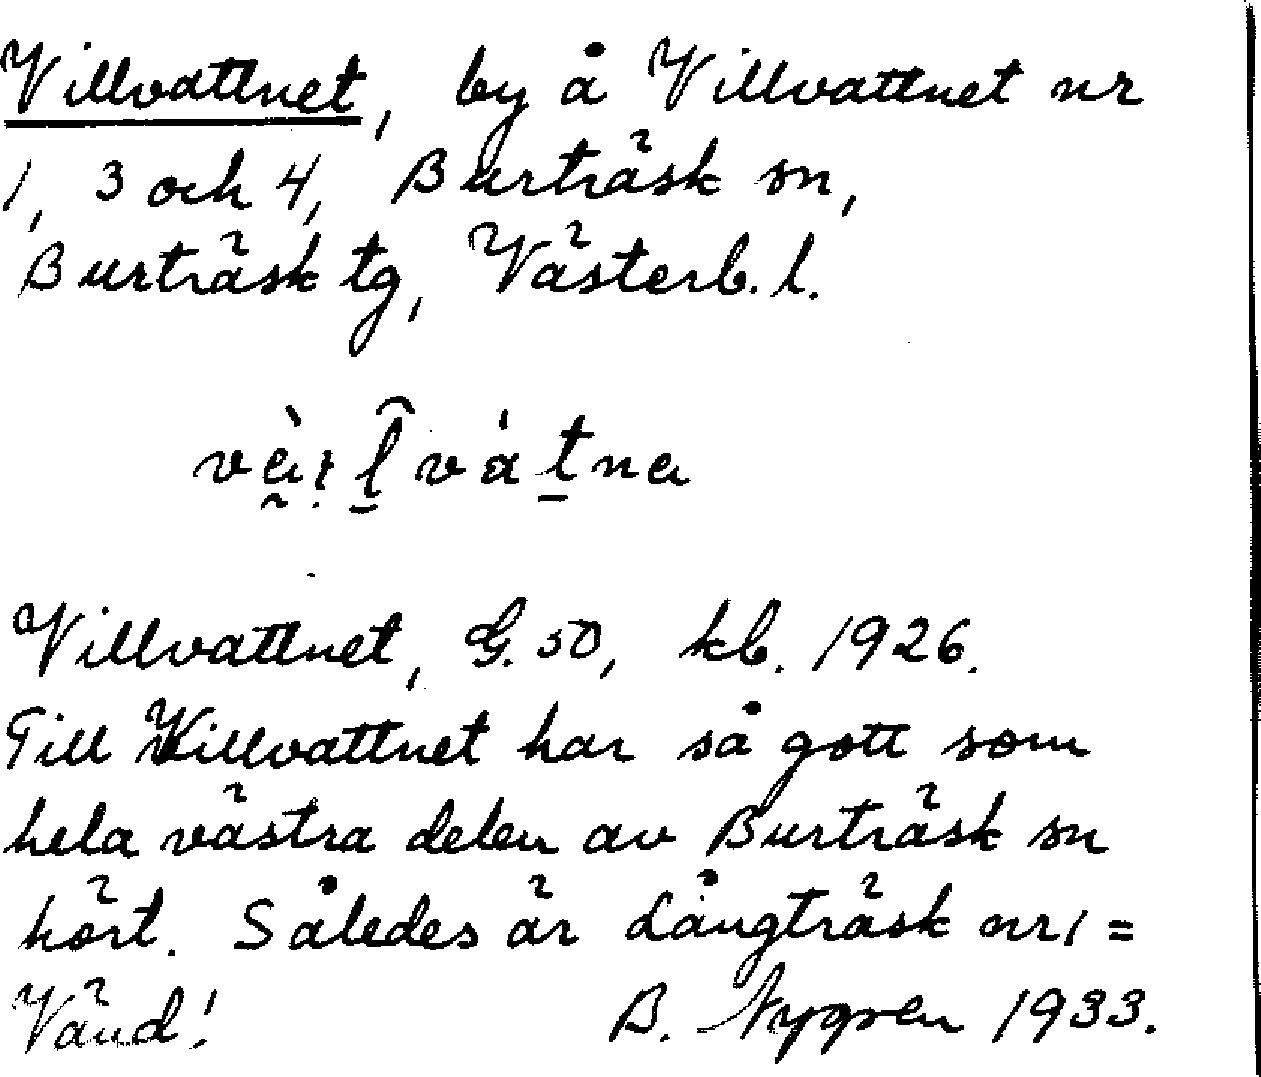 Villvattnet, by å Villvattnet nr
1, 3 och 4, Burträsk sn,
Burträsk tg, Västerb. l.
Villvattnet, G. 50, kb. 1926.
Till Villvattnet har så gott som
hela västra delen av Burträsk sn
hört. Således är Långträsk nr 1 =
Vänd! B. Nygren 1933.